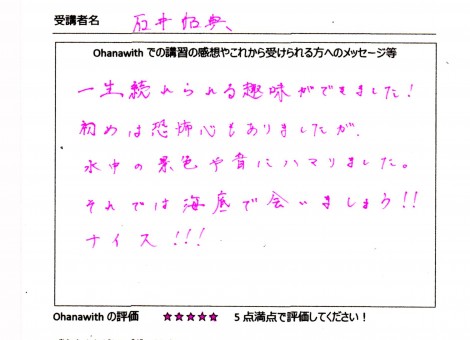 受講者名 石井
Ohanawith での講習の感想やこれから受けられる方へのメッセージ等
一生続れられる趣味ができました!
初めは恐怖心もありましたが、
水中の景色や音にハマりました。
それでは海底で会いましょう!!
ナイス!!!
Ohanawith の評価 ★★★★★ 5 点満点で評価してください!